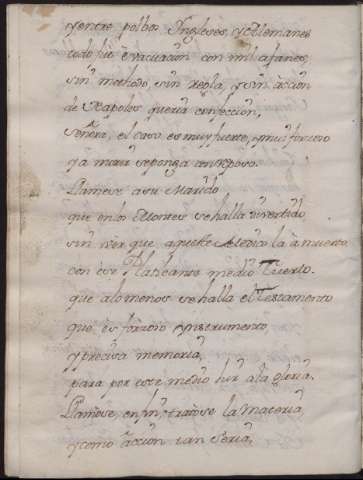 y entre polbos Ingleses, y Alemanes
todo fue evacuacion con mil afanes,
sin methodo, sin regla, y sin accion
de Napoles queria confeccion,
Señora, el caso es muy fuerte, y muy forzoso
Llamese a su Marido
que en los Montes se halla divertido
sin ver que aqueste Medico la à muerto
con ese Platicante medio Tuerto.
que a lo menos se halla el Testamento
que es forzoso Ynstrumento,
y precisa memoria,
para por este medio hir a la gloria.
Llamose, en fin, tratose la materia
y como accion tan seria,